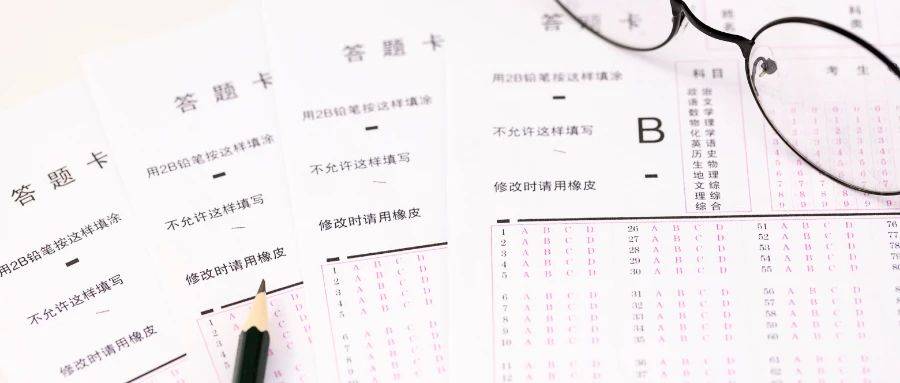 答题卡
用2B铅笔按这样填涂
不允许这样填写
修改时请用橡皮
答题卡
用2B铅笔按这样填涂
不允许这样填写
修改时请用橡皮
1 A B C D
2 A B C D
3 A B C D
4 A B C D
5
答题卡
用2B铅笔按这样填涂
不允许这样填写
修改时请用橡皮
1 A B C D
2 A B C D
3 A B C D
4 A B C D
5 A B C D
6 A B C D
7 A B C D
8 A B C D
9 A B C D
10 A B C D
答题卡
用2B铅笔按这样填涂
不允许这样填写
修改时请用橡皮
B
姓名
科类
科目
政治
语文
数学
物理
化学
英语
历史
生物
地理
文综
理综
综合
考生
1 A B C D 26 A B C D 51 A B C D 76
2 A B C D 27 A B C D 52 A B C D 77
3 A B C D 28 A B C D 53 A B C D 78
4 A B C D 29 A B C D 54 A B C D 79
5 A B C D 30 A B C D 55 A B C D 80
6 A B C D 31 A B C D 56 A B C D
7 A B C D 32 A B C D 57 A B C D
8 A B C D 33 A B C D 58 A B C D
9 A B C D 34 A B C D 59 A B C D
10 A B C D 35 A B C D 60 A B C D
11 A B C D 36 A B C D 61 A B C D
12 A B C D 37 A B C D 62 A B C D